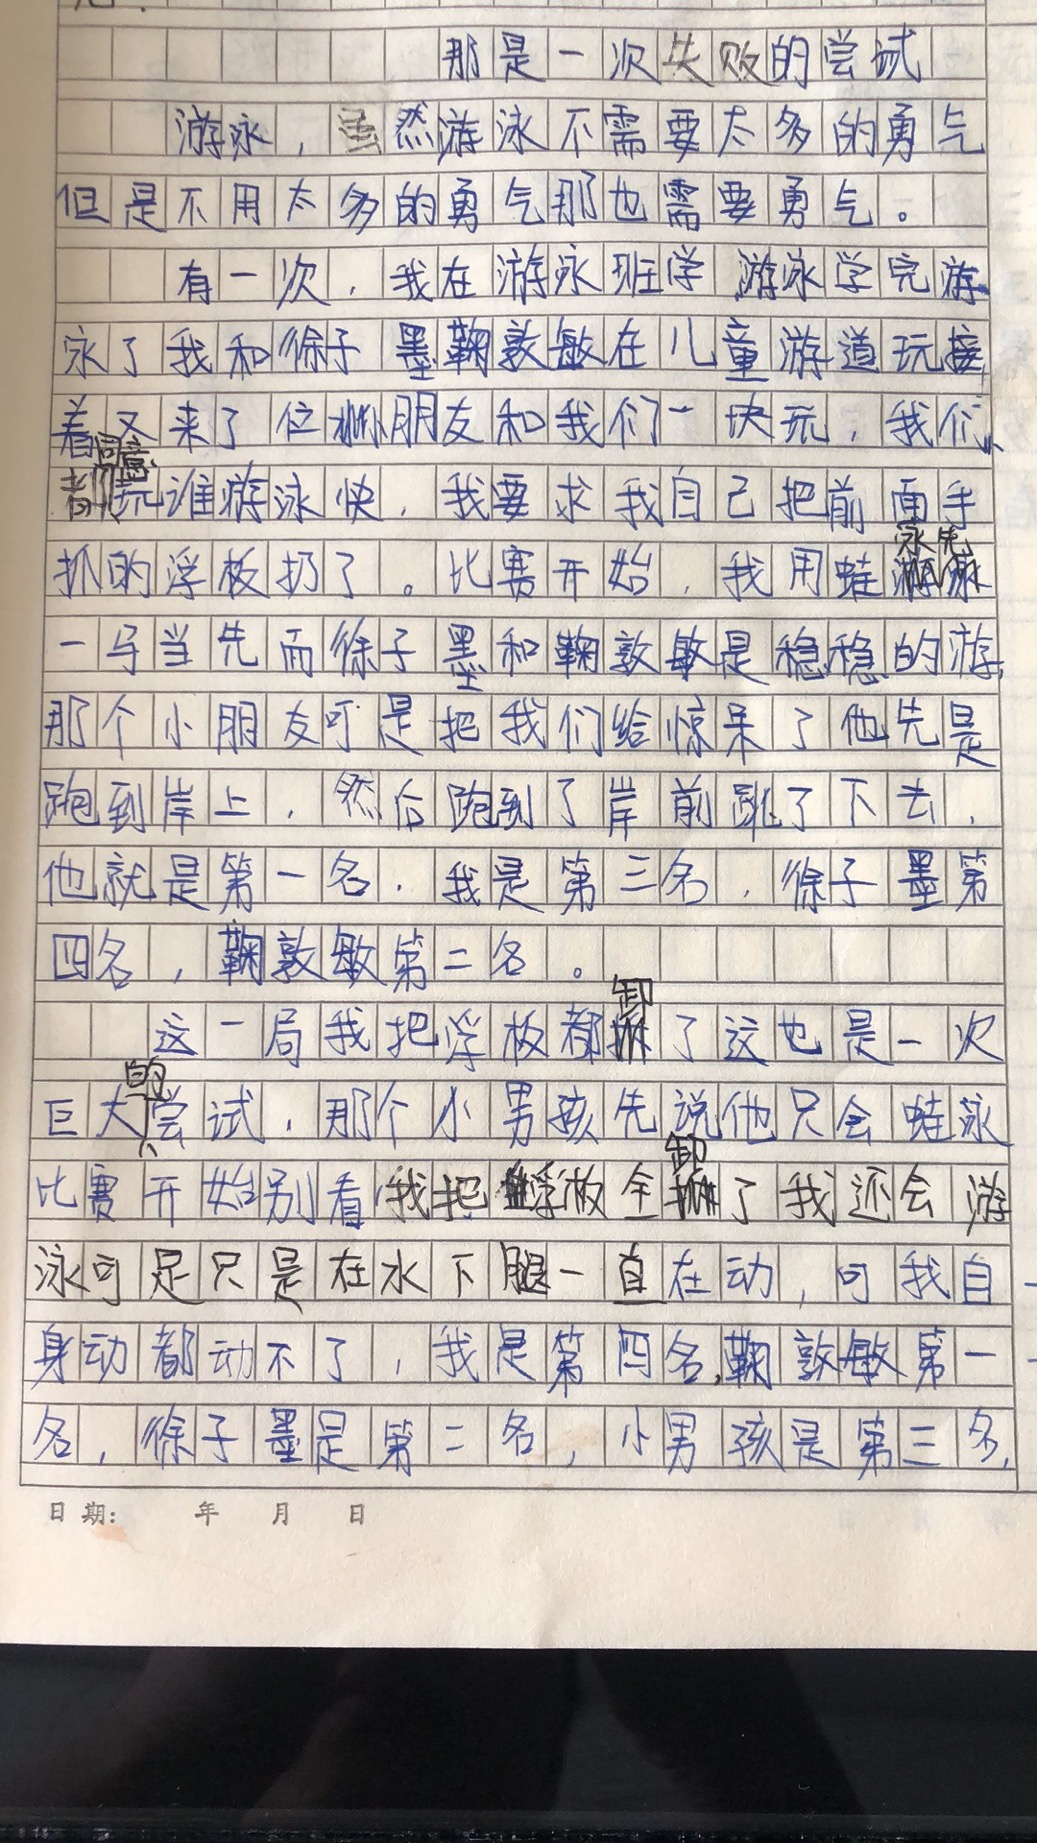 那是一次失败的尝试
游泳，虽然游泳不需要太多的勇气
但是不用太多的勇气那也需要勇气。
有一次，我在游泳班学游泳学完游
泳了我和徐子墨鞠敦敏在儿童游道玩接
着又来了位小朋友和我们一块玩，我们
同意
都玩谁游泳快，我要求我自己把前面手
抓的浮板扔了。比赛开始，我用蛙泳先
一马当先而徐子墨和鞠敦敏是稳稳的游，
那个小朋友可是把我们给惊呆了他先是
跑到岸上，然后跑到了岸前跳了下去，
他就是第一名，我是第三名，徐子墨第
四名，鞠敦敏第二名。
这一局我把浮板都卸了这也是一次
巨大的尝试，那个小男孩先说他只会蛙泳
比赛开始别看我把浮板全卸了我还会游
泳可是只是在水下腿一直在动，可我自
身动都动不了，我是第四名，鞠敦敏第一
名，徐子墨是第二名，小男孩是第三名，
日期： 年 月 日